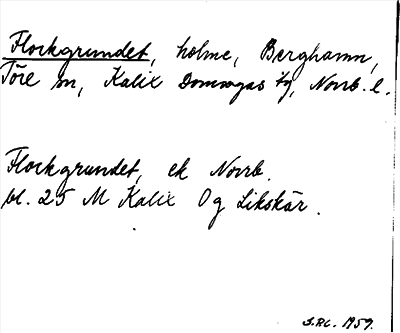 Flockgrundet, holme, Berghamn,
Töre sn, Kalix Domsagas tg, Norrb. l.
Flockgrundet, ek Norrb.
bl. 25 M Kalix Og Likskär.
1959.